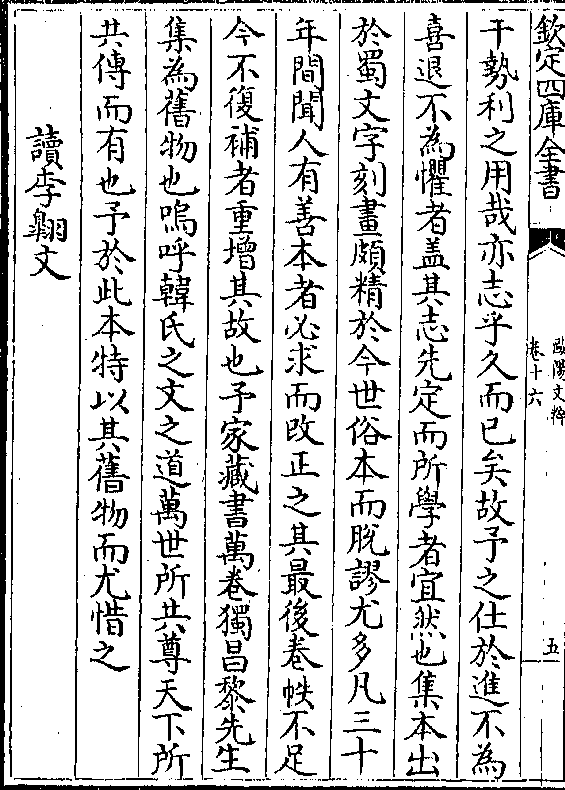 欽定四庫全書
歐陽文粹
卷十六
五
干勢利之用哉亦志乎久而已矣故予之仕於進不為
喜退不為懼者盖其志先定而所學者宜然也集本出
於蜀文字刻畫頗精於今世俗本而脫謬尤多凡三十
年間聞人有善本者必求而改正之其最後卷帙不足
今不復補者重增其故也予家藏書萬卷獨昌黎先生
集為舊物也嗚呼韓氏之文之道萬世所共尊天下所
共傳而有也予於此本特以其舊物而尤惜之
讀李翺文